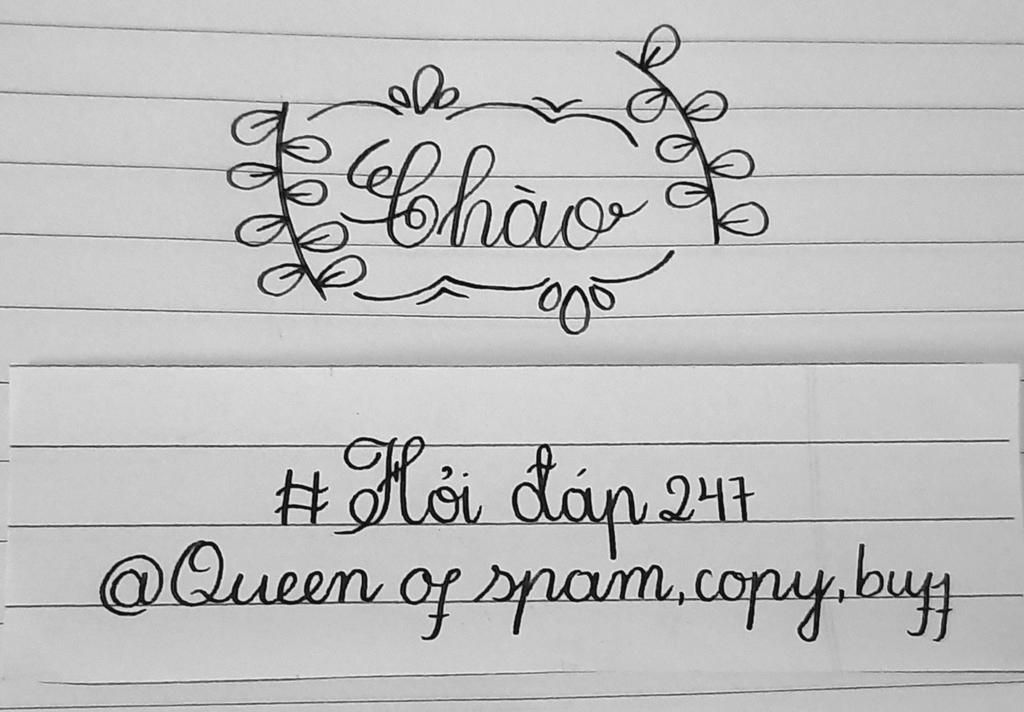 Chào
# Hỏi đáp 247
@Queen of spam, copy, buff